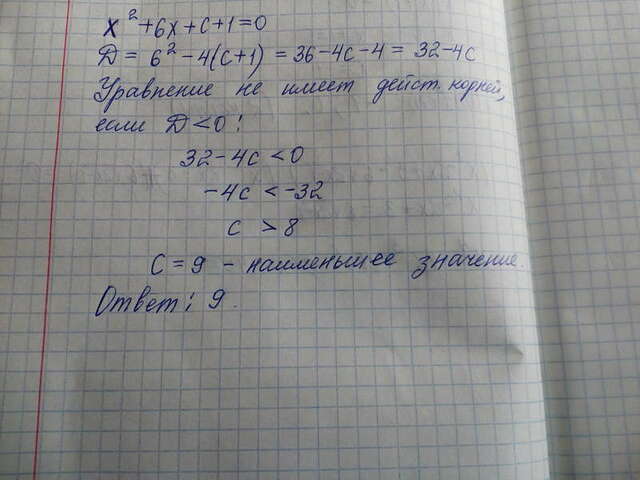 x² + 6x + c + 1 = 0
D = 6² - 4(c+1) = 36 - 4c - 4 = 32 - 4c
Уравнение не имеет дейст. корней,
если D < 0:
32 - 4c < 0
-4c < -32
c > 8
C = 9 - наименьшее значение.
Ответ: 9.